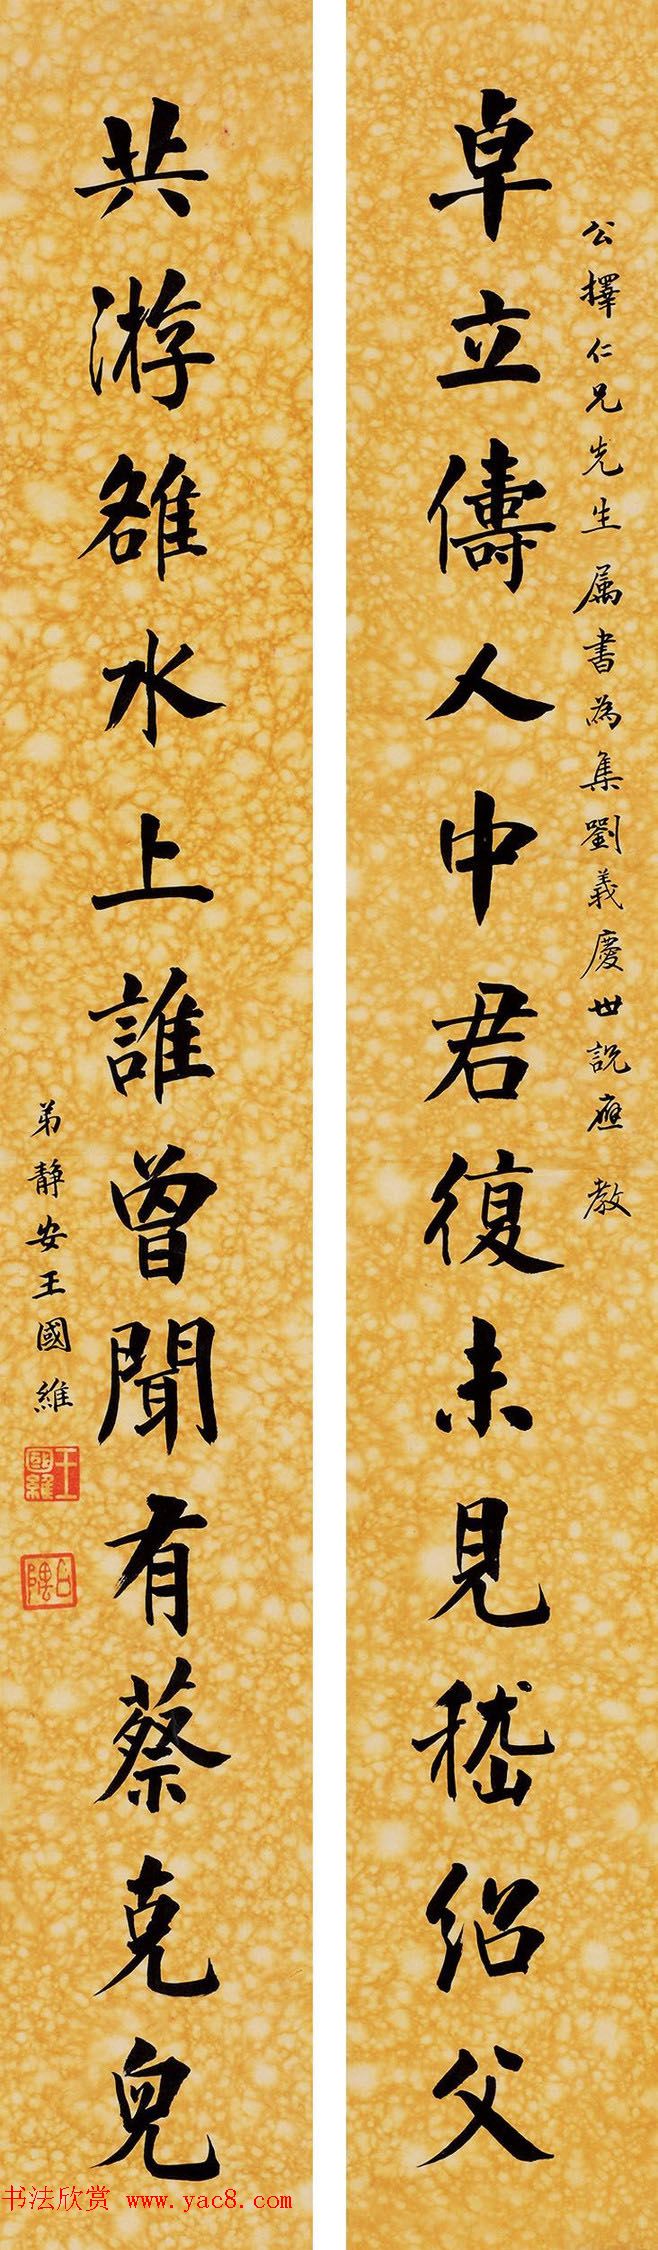 公擇仁兄先生属書為集劉義慶世說應 教
卓立儔人中君復未見嵇紹父
共游雒水上誰曾聞有蔡克兒
弟靜安王國維
王國維
書法欣赏 www.yac8.com